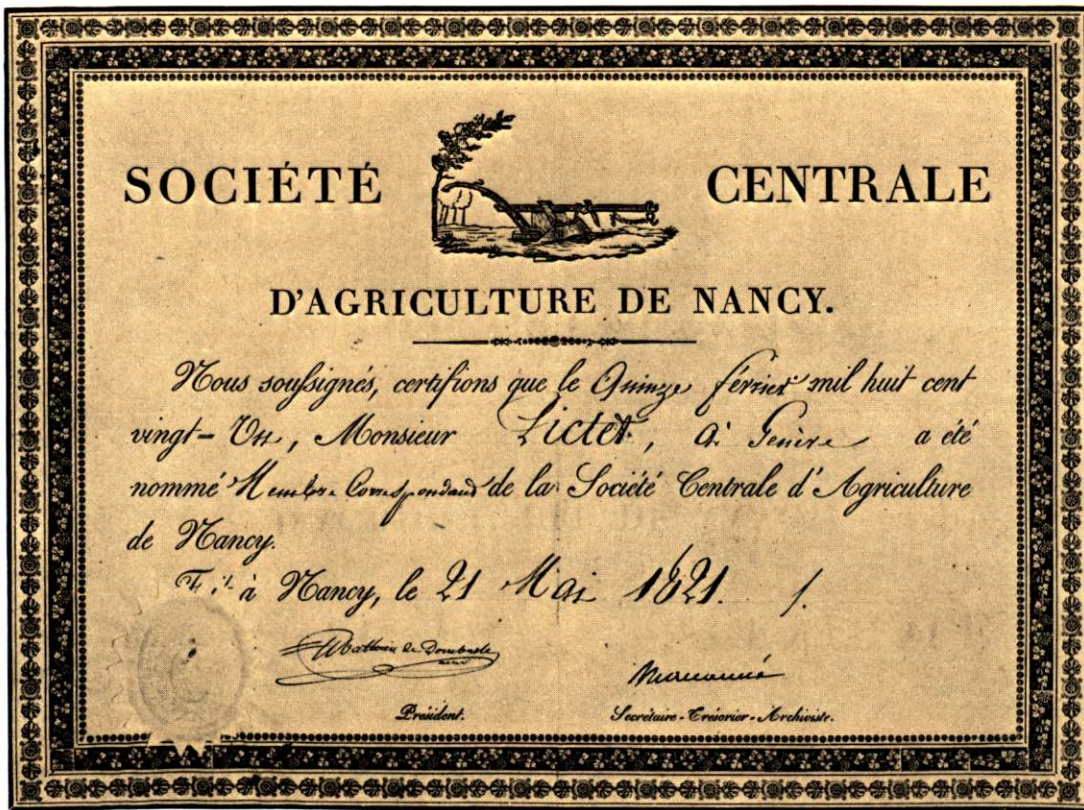 SOCIÉTÉ CENTRALE
D'AGRICULTURE DE NANCY.
Nous soussignés, certifions que le Quinze février mil huit cent
vingt-Un, Monsieur Pictet, à Genève a été
nommé Membre Correspondant de la Société Centrale d'Agriculture
de Nancy.
Fait à Nancy, le 21 Mai 1821.
Mathieu de Dombasle
Président. Secrétaire-Trésorier-Archiviste.